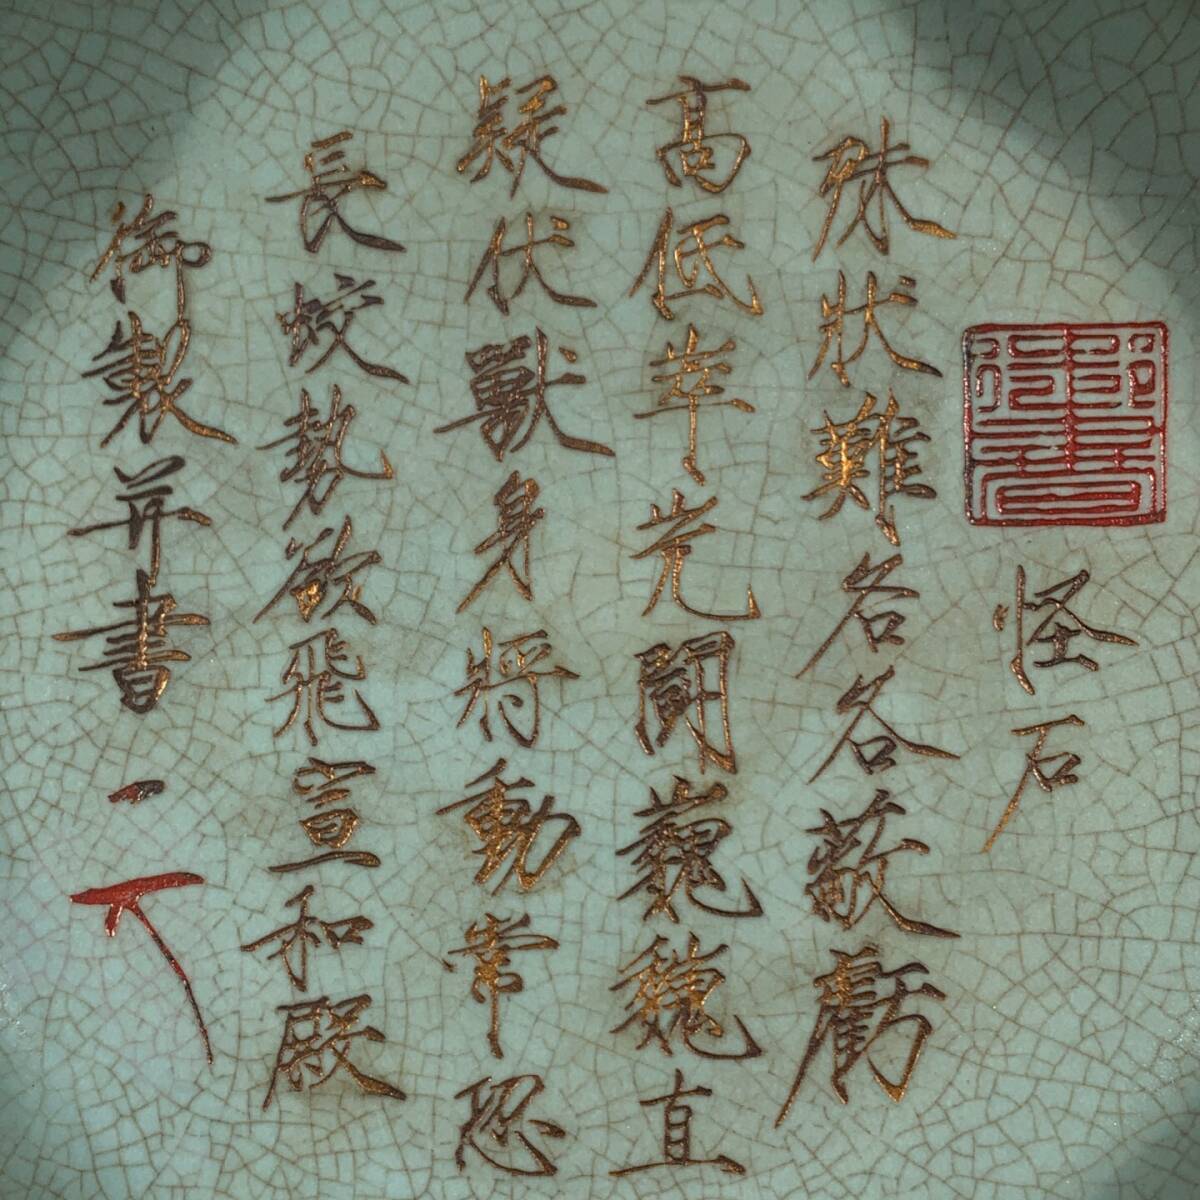 怪石
殊狀難名各蔽虧
高低崒光鬪巍巍直
疑伏獸身將動常恐
長蛟勢欲飛宣和殿
御製并書